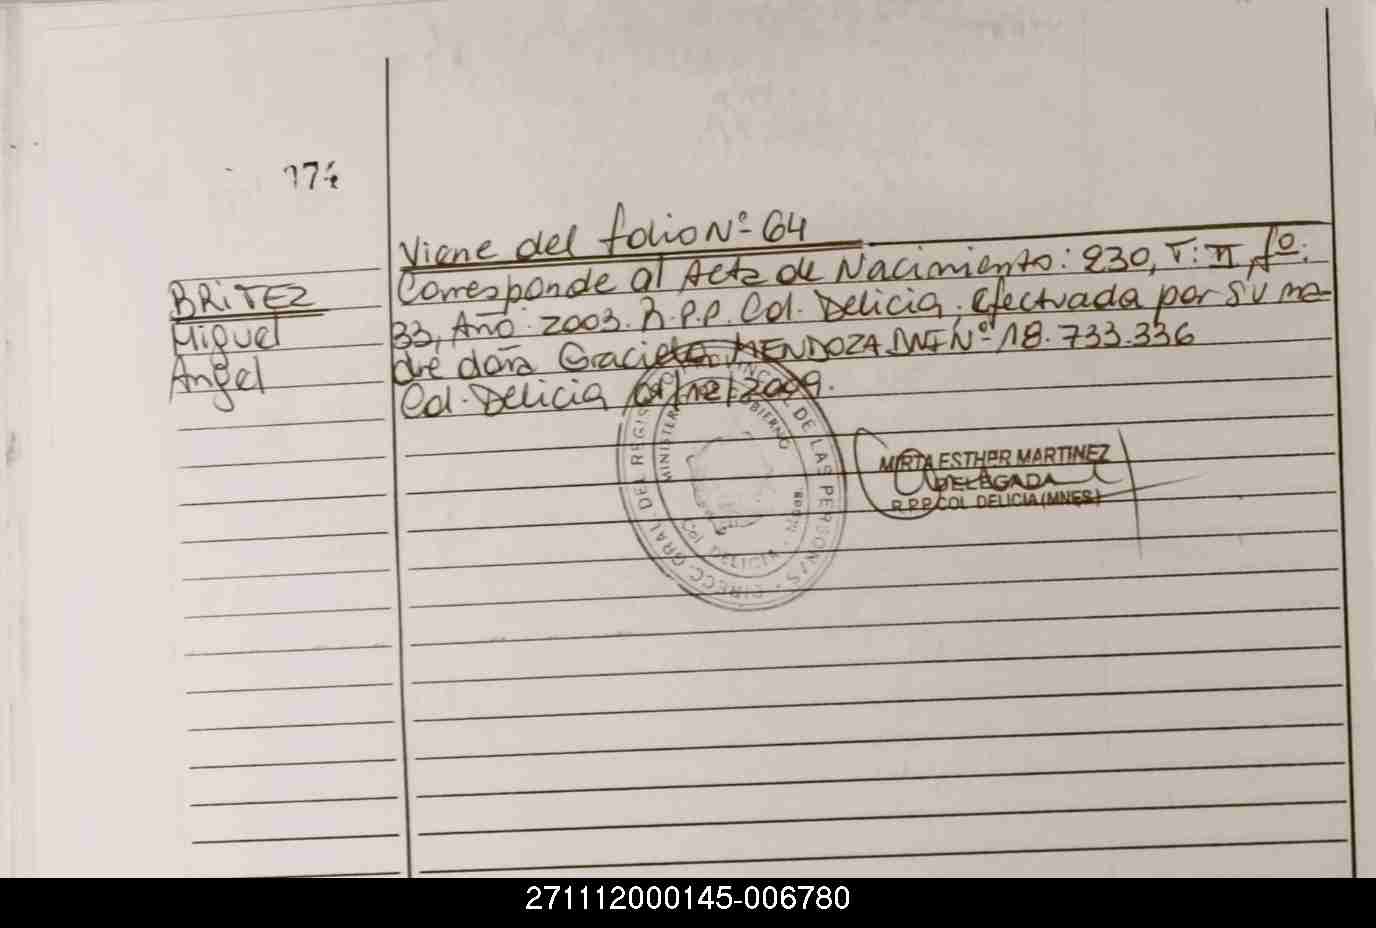 Viene del folio Nº 64
BRITEZ
Miguel
Angel
Corresponde al Acta de Nacimiento: 230, T: II, fº:
33, Año: 2003. R.P.P. Col. Delicia. Efectuada por su ma-
dre doña Graciela MENDOZA DNI Nº 18.733.336
Col. Delicia /12/2009.
MIRTA ESTHER MARTINEZ
DELEGADA
R.P.P. COL DELICIA (MNES)
DIRECC. GRAL DEL REGIS DE LAS PERSONAS
MINISTER GOBIERNO
COL DELICIA
271112000145-006780